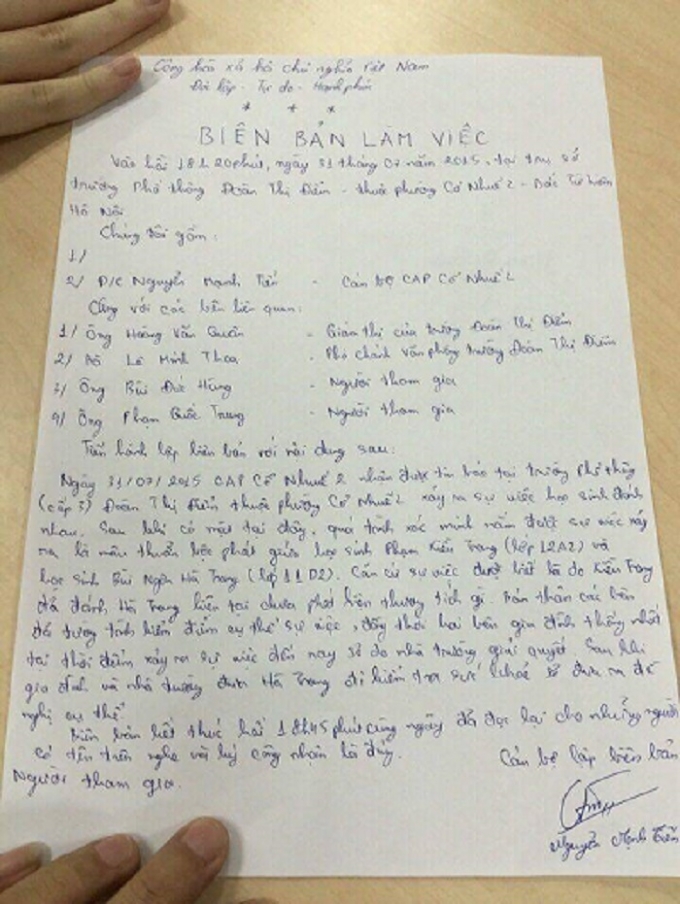 Cộng hòa xã hội chủ nghĩa Việt Nam
Độc lập - Tự do - Hạnh phúc
* * *
BIÊN BẢN LÀM VIỆC
Vào hồi 18h20phút, ngày 31 tháng 07 năm 2015, tại trụ sở
trường Phổ thông Đoàn Thị Điểm - thuộc phường Cổ Nhuế 2 - Bắc Từ Liêm
Hà Nội
Chúng tôi gồm:
1/
2/ Đ/C Nguyễn Mạnh Tiến - Cán bộ CAP Cổ Nhuế 2
Cùng với các bên liên quan:
1/ Ông Hoàng Văn Quân - Giám thị của trường Đoàn Thị Điểm
2/ Bà Lê Minh Thoa - Phó chánh văn phòng trường Đoàn Thị Điểm
3/ Ông Bùi Đức Hùng - Người tham gia
4/ Ông Phạm Quốc Trung - Người tham gia
Tiến hành lập biên bản với nội dung sau:
Ngày 31/07/2015 CAP Cổ Nhuế 2 nhận được tin báo tại trường phổ thông
(cấp 3) Đoàn Thị Điểm thuộc phường Cổ Nhuế 2 xảy ra sự việc học sinh đánh
nhau. Sau khi có mặt tại đây, quá trình xác minh nắm được sự việc xảy
ra là mâu thuẫn bộc phát giữa học sinh Phạm Kiều Trang (lớp 12A2) và
học sinh Bùi Ngân Hà Trang (lớp 11D2). Căn cứ sự việc được biết là do Kiều Trang
đã đánh Hà Trang hiện tại chưa phát hiện thương tích gì. Bản thân các bên
đã tường trình kiểm điểm cụ thể sự việc, đồng thời hai bên gia đình thống nhất
tại thời điểm xảy ra sự việc đến nay sẽ do nhà trường giải quyết. Sau khi
gia đình và nhà trường đưa Hà Trang đi kiểm tra sức khỏe sẽ đưa ra đề
nghị cụ thể.
Biên bản kết thúc hồi 18h45phút cùng ngày đã đọc lại cho những người
có tên trên nghe và ký công nhận là đúng.
Cán bộ lập biên bản
Người tham gia.
Nguyễn Mạnh Tiến